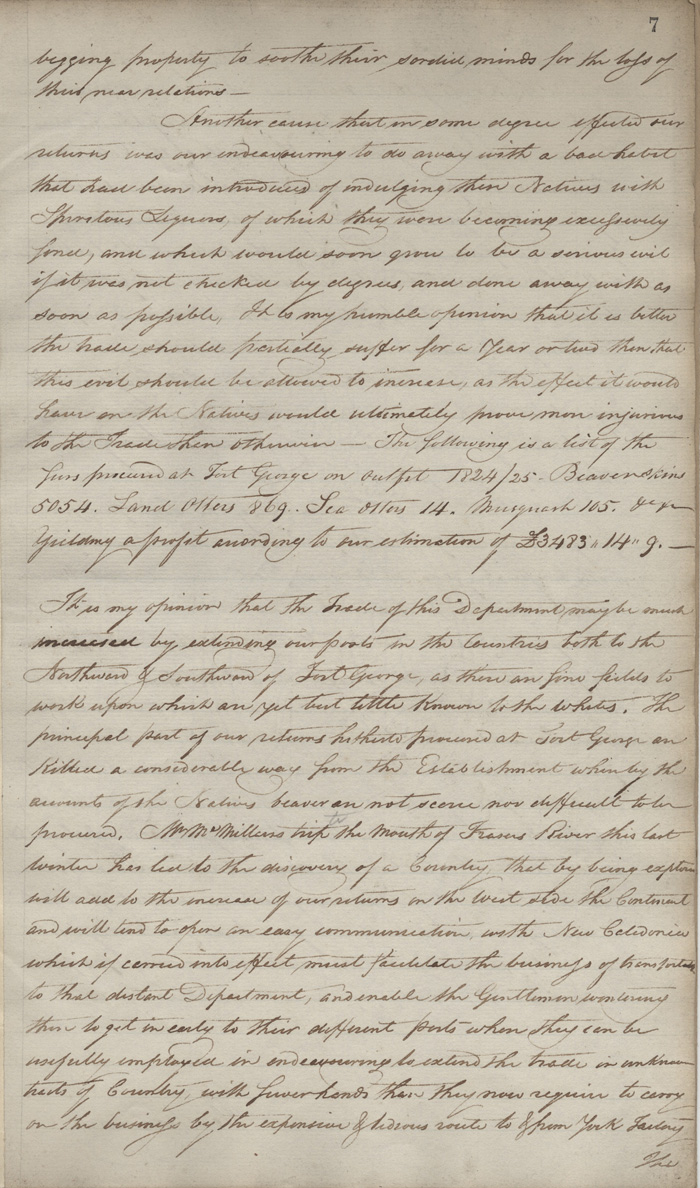 7
begging property to soothe their sordid minds for the loss of
their near relations —
Another cause that in some degree effected our
returns was our endeavouring to do away with a bad habit
that had been introduced of indulging these Natives with
Spiratous Liquors, of which they were becoming excessively
fond, and which would soon grow to be a serious evil
if it was not checked by degrees, and done away with as
soon as possible, It is my humble opinion that it is better
the trade should partially suffer for a Year or two than that
this evil should be allowed to increase, as the effect it would
have on the Natives would ultimately prove more injurious
to the Trade than otherwise — The following is a list of the
furs procured at Fort George on outfit 1824/25 - Beaver Skins
5054. Land Otters 869. Sea Otters 14. Musquash 105. &c &c —
Yielding a profit according to our estimation of £3483 " 14 " 9. —
It is my opinion that the Trade of this Department may be much
increased by extending our posts in the Countries both to the
Northward & Southward of Fort George, as there are fine fields to
work upon which are yet but little known to the whites. The
principal part of our returns hitherto procured at Fort George are
killed a considerable way from the Establishment where by the
accounts of the Natives beaver are not scarce nor difficult to be
procured. Mr McMillans trip to the Mouth of Frasers River this last
Winter has led to the discovery of a Country that by being explored
will add to the increase of our returns on the West side the Continent
and will tend to open an easy communication with New Caledonia
which if carried into effect must facilitate the business of transporting
to that distant Department, and enable the Gentlemen wintering
there to get in early to their different posts when they can be
usefully employed in endeavouring to extend the trade in unknown
tracts of Country, with fewer hands than they now require to carry
on the business by the expensive & tedious route to & from York Factory
The